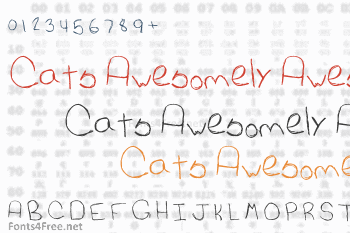 0123456789+
Cats Awesomely Awes
Cats Awesomely A
Cats Awesome
ABCDEFGHIJKLMOPRST
Fonts4Free.net